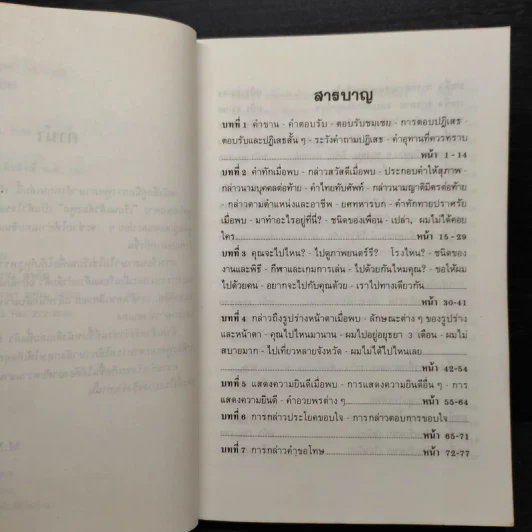 สารบาญ
บทที่ 1 คำขาน - คำตอบรับ - ตอบรับชมเชย - การตอบปฏิเสธ -
ตอบรับและปฏิเสธสั้น ๆ - ระวังคำถามปฏิเสธ - คำอุทานที่ควรทราบ
หน้า 1 - 14
บทที่ 2 คำทักเมื่อพบ - กล่าวสวัสดีเมื่อพบ - ประกอบคำให้สุภาพ -
กล่าวนามบุคคลต่อท้าย - คำไทยทับศัพท์ - กล่าวนามญาติมิตรต่อท้าย
- กล่าวตามตำแหน่งและอาชีพ - ยศทหารบก - คำทักทายปราศรัย
เมื่อพบ - มาทำอะไรอยู่ที่นี่? - ชนิดของเพื่อน - เปล่า, ผมไม่ได้คอย
ใคร หน้า 15 - 29
บทที่ 3 คุณจะไปไหน? - ไปดูภาพยนตร์รึ? โรงไหน? - ชนิดของ
งานและพิธี - กีฬาและเกมการเล่น - ไปด้วยกันไหมคุณ? - ขอให้ผม
ไปด้วยคน - อยากจะไปกับคุณด้วย - เราไปทางเดียวกัน
หน้า 30-41
บทที่ 4 กล่าวถึงรูปร่างหน้าตาเมื่อพบ - ลักษณะต่าง ๆ ของรูปร่าง
และหน้าตา - คุณไปไหนมานาน - ผมไปอยู่อยุธยา 3 เดือน - ผมไม่
สบายมาก - ไปเที่ยวหลายจังหวัด - ผมไม่ได้ไปไหนเลย
หน้า 42-54
บทที่ 5 แสดงความยินดีเมื่อพบ - การแสดงความยินดีอื่น ๆ - การ
แสดงความยินดี - คำอวยพรต่าง ๆ หน้า 55-64
บทที่ 6 การกล่าวประโยคขอบใจ - การกล่าวตอบการขอบใจ
หน้า 65-71
บทที่ 7 การกล่าวคำขอโทษ หน้า 72-77